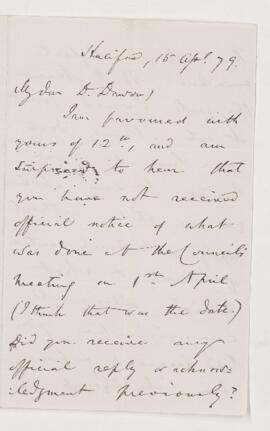 Halifax, 15 Apl. 79.
My dear Dr. Dawson,
I am favoured with
yours of 12th, and am
surprised to hear that
you have not received
official notice of what
was done at the Council's
meeting on 1st April
(I think that was the date.)
Did you receive any
official reply or acknow-
ledgment previously?